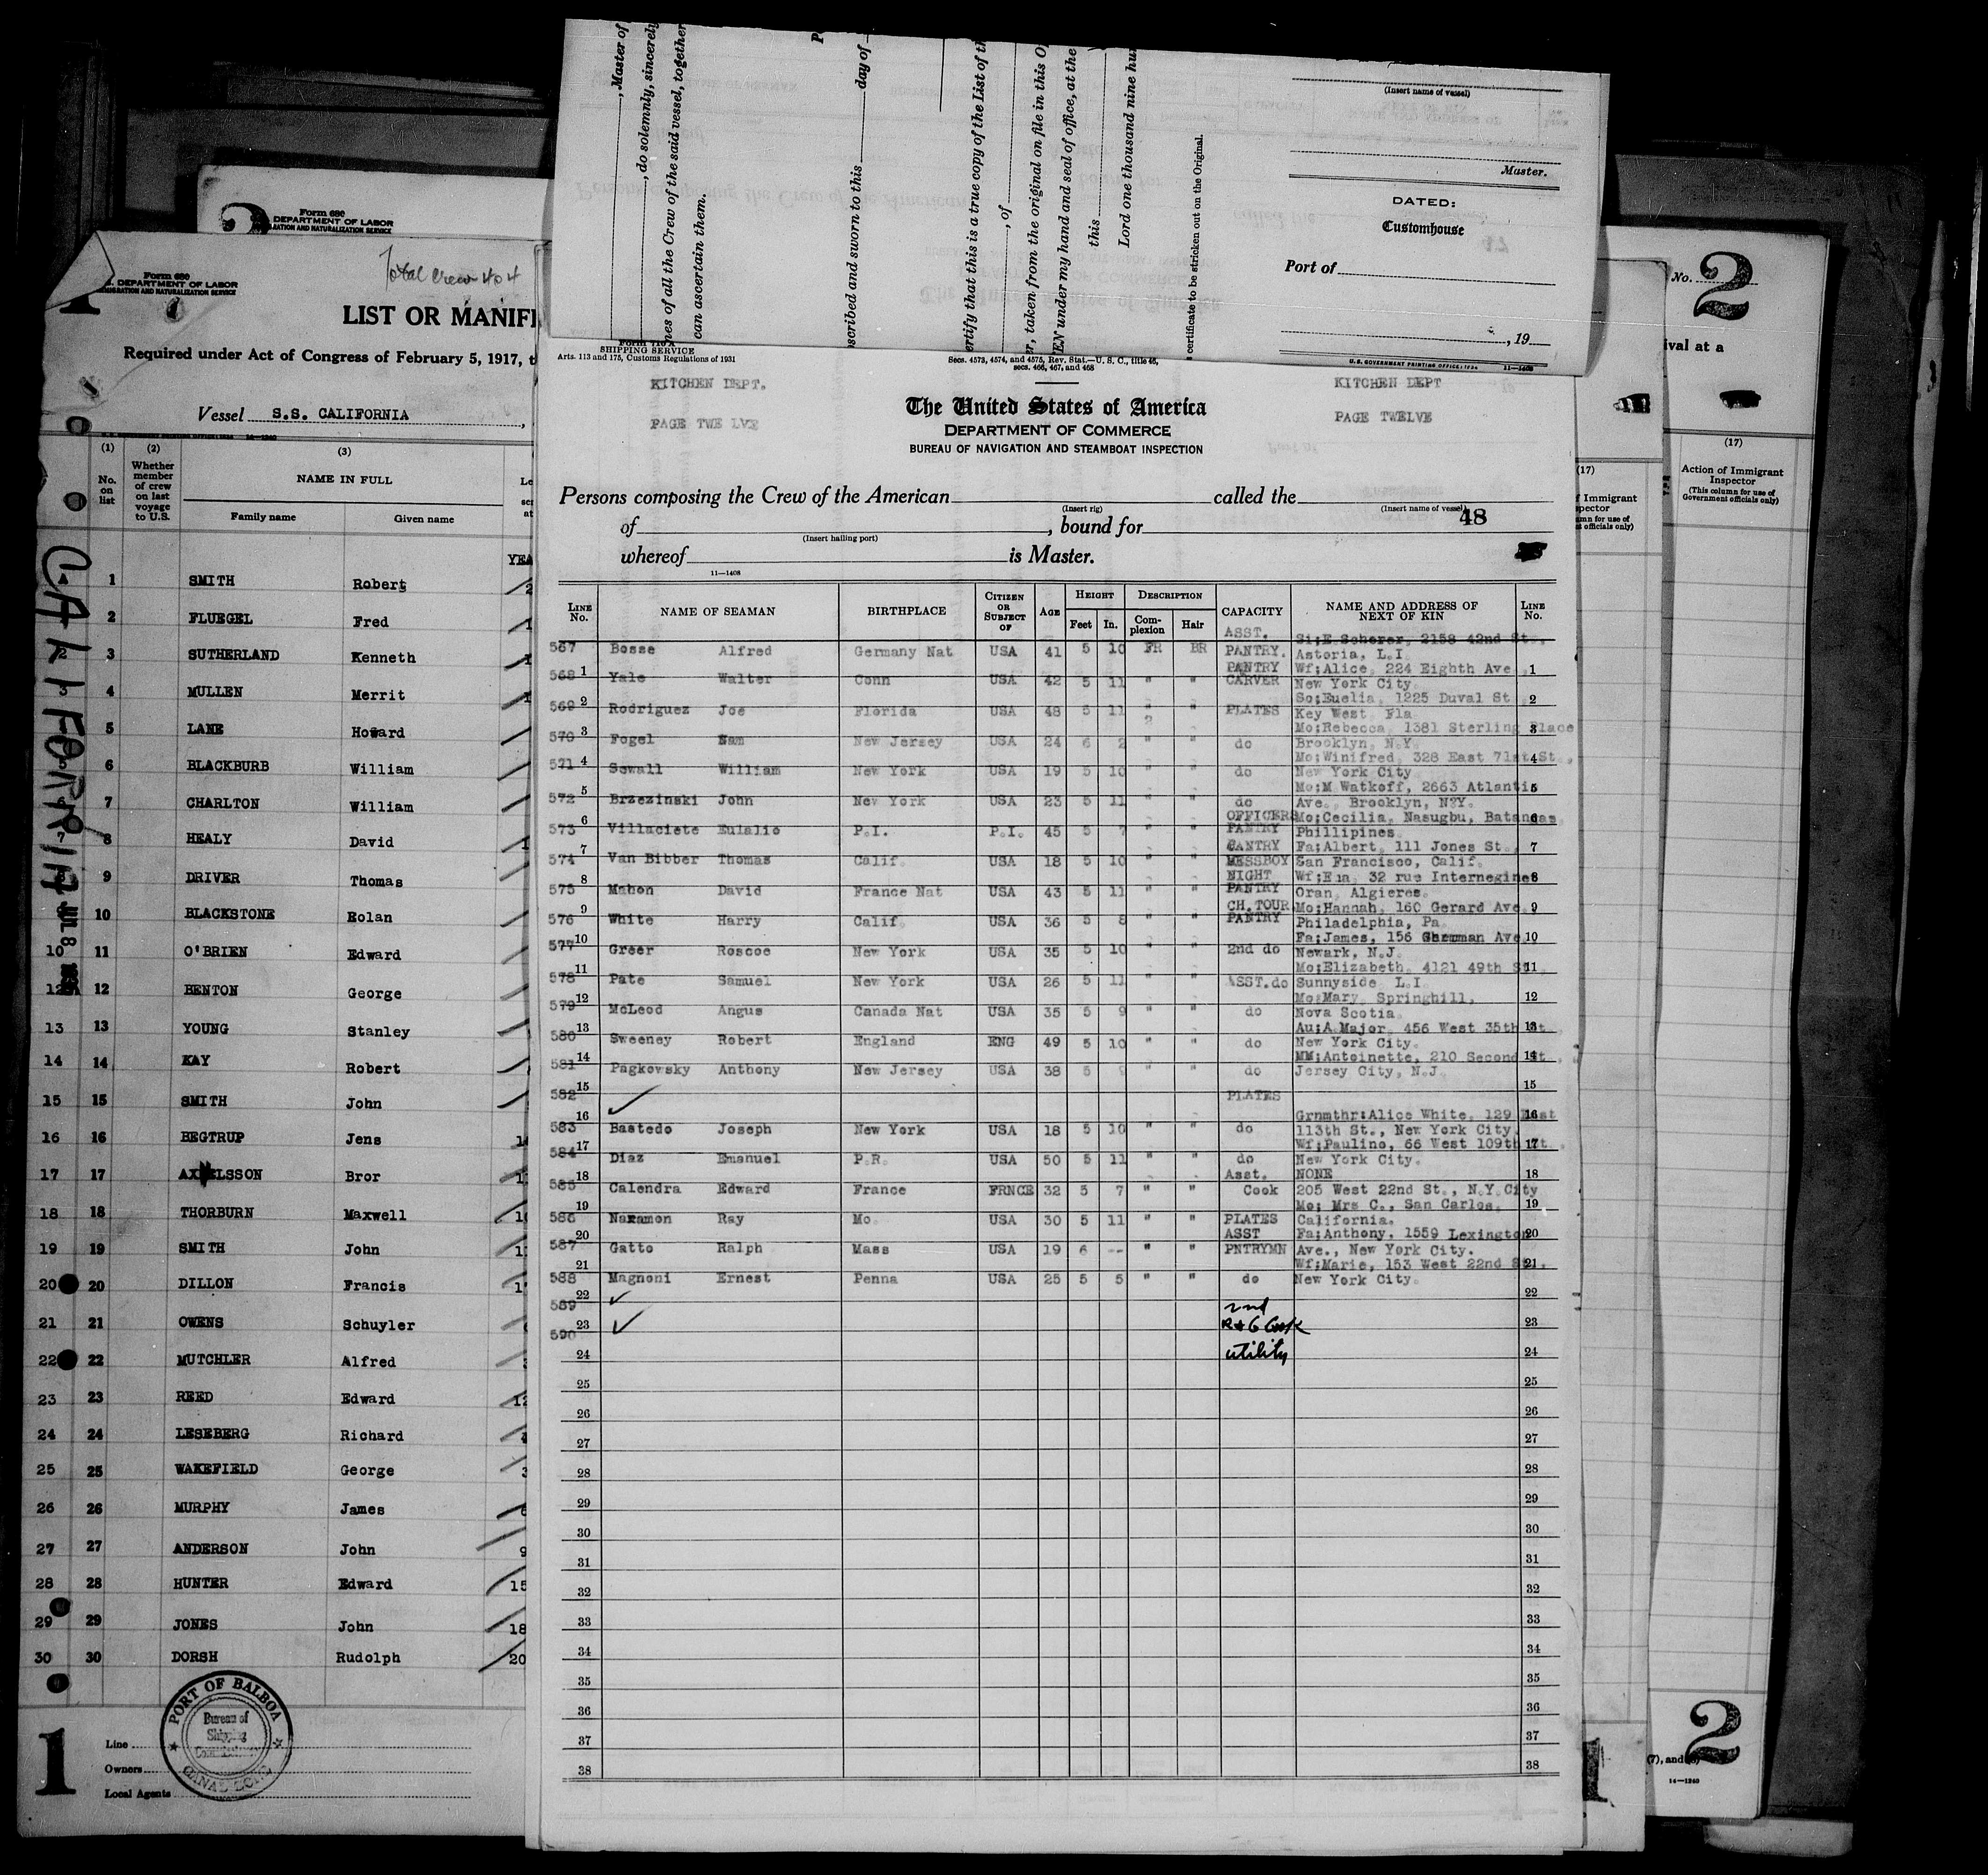 Form 680
DEPARTMENT OF LABOR
IMMIGRATION AND NATURALIZATION SERVICE
Form 680
DEPARTMENT OF LABOR
IMMIGRATION AND NATURALIZATION SERVICE
Total Crew 404
LIST OR MANIF
Required under Act of Congress of February 5, 1917,
Vessel S.S. CALIFORNIA
(1) (2) (3)
No. on list
Whether member of crew on last voyage to U.S.
NAME IN FULL
Family name Given name
CALIFORNIA
1 SMITH Robert
2 FLUEGEL Fred
2 3 SUTHERLAND Kenneth
3 4 MULLEN Merrit
5 LANE Howard
6 BLACKBURB William
7 CHARLTON William
7 8 HEALY David
9 DRIVER Thomas
10 BLACKSTONE Rolan
10 11 O'BRIEN Edward
12 12 BENTON George
13 13 YOUNG Stanley
14 14 KAY Robert
15 15 SMITH John
16 16 BEGTRUP Jens
17 17 AXELSSON Bror
18 18 THORBURN Maxwell
19 19 SMITH John
20 20 DILLON Francis
21 21 OWENS Schuyler
22 22 MUTCHLER Alfred
23 23 REED Edward
24 24 LESEBERG Richard
25 25 WAKEFIELD George
26 26 MURPHY James
27 27 ANDERSON John
28 28 HUNTER Edward 15
29 29 JONES John 18
30 30 DORSH Rudolph 20
PORT OF BALBOA
Bureau of
Shipping
CANAL ZONE
1
Line
Owners
Local Agents
, Master of
, do solemnly, sincerely
nes of all the Crew of the said vessel, together
can ascertain them.
scribed and sworn to this day of
ertify that this is a true copy of the List of th
, of
r, taken from the original on file in this O
EN under my hand and seal of office, at the
this
Lord one thousand nine hun
certificate to be stricken out on the Original.
(Insert name of vessel)
Master.
DATED:
Customhouse
Port of
, 19
U.S. GOVERNMENT PRINTING OFFICE: 1934 11—1408
Form 710 A
SHIPPING SERVICE
Arts. 113 and 175, Customs Regulations of 1931
Secs. 4573, 4574, and 4575, Rev. Stat.—U. S. C., title 46,
secs. 466, 467, and 468
KITCHEN DEPT.
PAGE TWE LVE
The United States of America
DEPARTMENT OF COMMERCE
BUREAU OF NAVIGATION AND STEAMBOAT INSPECTION
KITCHEN DEPT
PAGE TWELVE
Persons composing the Crew of the American called the
(Insert rig) (Insert name of vessel)
48
of , bound for
(Insert hailing port)
whereof is Master.
11—1408
LINE No. NAME OF SEAMAN BIRTHPLACE CITIZEN OR SUBJECT OF AGE HEIGHT Feet In. DESCRIPTION Complexion Hair CAPACITY NAME AND ADDRESS OF NEXT OF KIN LINE No.
ASST. Si;E Scherer, 2158 42nd St.,
567 Bosse Alfred Germany Nat USA 41 5 10 FR BR PANTRY. Astoria, L.I
PANTRY Wf;Alice, 224 Eighth Ave 1
568 1 Yale Walter Conn USA 42 5 11 " " CARVER New York City
So;Euelia, 1225 Duval St 2
569 2 Rodriguez Joe Florida USA 48 5 11 " " PLATES Key West, Fla
Mo;Rebecca, 1381 Sterling Place 3
570 3 Fogel Sam New Jersey USA 24 6 2 " " do Brooklyn, N.Y.
Mo;Winifred, 328 East 71st St., 4
571 4 Sewall William New York USA 19 5 10 " " do New York City
Mo;M Watkoff, 2663 Atlantic 5
572 5 Brzezinski John New York USA 23 5 11 " " do Ave., Brooklyn, N.Y.
OFFICERS Mo;Cecilia, Nasugbu, Batangas 6
573 6 Villaciete Eulalio P.I. P.I. 45 5 7 " " PANTRY Phillipines.
CANTRY Fa;Albert, 111 Jones St., 7
574 7 Van Bibber Thomas Calif. USA 18 5 10 " " MESSBOY San Francisco, Calif.
NIGHT 32 rue Internegines 8
575 8 Mahon David France Nat USA 43 5 11 " " PANTRY Oran, Algieres.
CH.TOUR Mo;Hannah, 160 Gerard Ave. 9
576 9 White Harry Calif. USA 36 5 8 " " PANTRY Philadelphia, Pa
Fa;James, 156 Sherman Ave 10
577 10 Greer Roscoe New York USA 35 5 10 " " 2nd do Newark, N.J.
Mo;Elizabeth, 4121 49th St. 11
578 11 Pate Samuel New York USA 26 5 11 " " ASST.do Sunnyside L.I
Mo;Mary, Springhill, 12
579 12 McLeod Angus Canada Nat USA 35 5 9 " " do Nova Scotia.
Au;A Major, 456 West 35th St. 13
580 13 Sweeney Robert England ENG 49 5 10 " " do New York City.
MM;Antoinette, 210 Second St. 14
581 14 Pagkowsky Anthony New Jersey USA 38 5 9 " " do Jersey City, N.J.
582 15 ✓ PLATES 15
16 Grnmthr:Alice White, 129 East 16
583 Bastedo Joseph New York USA 18 5 10 " " do 113th St., New York City.
Wf;Pauline, 66 West 109th St. 17
584 17 Diaz Emanuel P.R. USA 50 5 11 " " do New York City.
Asst. NONE 18
585 18 Calendra Edward France FRNCE 32 5 7 " " Cook 205 West 22nd St., N.Y.City
Mo; Mrs C., San Carlos, 19
586 19 Naramon Ray Mo. USA 30 5 11 " " PLATES California.
ASST Fa;Anthony, 1559 Lexington 20
587 20 Gatto Ralph Mass USA 19 6 -- " " PNTRYMN Ave., New York City.
Wf;Marie, 153 West 22nd St. 21
588 21 Magnoni Ernest Penna USA 25 5 5 " " do New York City.
589 22 ✓ 2nd 22
590 23 ✓ R+G Cook 23
24 utility 24
25 25
26 26
27 27
28 28
29 29
30 30
31 31
32 32
33 33
34 34
35 35
36 36
37 37
38 38
(17)
f Immigrant
spector
No. 2
ival at a
(17)
Action of Immigrant
Inspector
(This column for use of
Government officials only)
1
2
(7), and (8)
14—1240